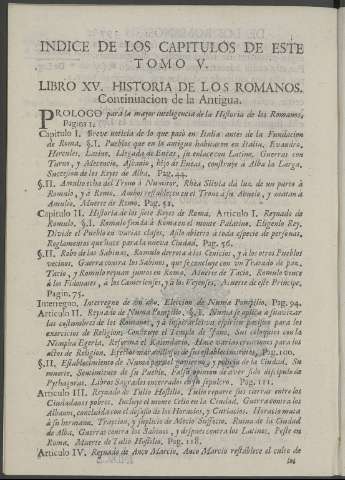 INDICE DE LOS CAPITULOS DE ESTE
TOMO V.
LIBRO XV. HISTORIA DE LOS ROMANOS.
Continuacion de la Antigua.
PROLOGO para la mayor inteligencia de la Historia de los Romanos,
Pagina 1.
Capitulo I. Breve noticia de lo que pasó en Italia antes de la Fundacion
de Roma. §.I. Pueblos que en lo antiguo habitaron en Italia, Evandro,
Hercules, Latino. Llegada de Eneas, su enlace con Latino. Guerras con
Turno, y Mecencio, Ascanio, hijo de Eneas, construye à Alba la Larga,
Succession de los Reyes de Alba. Pag. 44.
§.II. Amulio echa del Trono à Numitor, Rhèa Silvia dà luz, de un parto à
Romulo, y à Remo. Ambos restablecen en el Trono à su Abuelo, y matan à
Amulio. Muerte de Remo. Pag. 51.
Capitulo II. Historia de los siete Reyes de Roma. Articulo I. Reynado de
Romulo. §.I. Romulo funda à Roma en el monte Palatino. Eligenlo Rey.
Divide el Pueblo en varias clases, Asilo abierto à toda especie de personas,
Reglamentos que hace para la nueva Ciudad. Pag. 56.
§.II. Robo de las Sabinas, Romulo derrota à los y à otros Pueblos
vecinos. Guerra contra los Sabinos, que se concluye con un Tratado de paz,
Tacio, y Romulo reynan juntos en Roma. Muerte de Tacio. Romulo vence
à los Fidenates, à los Camerienses, y à los Veyenses. Muerte de este Principe.
Pagin. 75.
Interregno, Interregno de un año. Eleccion de Numa Pompilio. Pag. 94.
Articulo II. Reynado de Numa Pompilio. §.I. Numa se aplica à suavizar
las costumbres de los Romanos, y à inspirarles pacifico para los
exercicios de Religion. Construye el Templo de Jano. Sus coloquios con la
Ninpha Egeria. Reforma el Kalendario. Hace varias para los
actos de Religion. Pag. 100.
§.II. Establecimiento de Numa para el govierno, y policìa de la Ciudad. Su
muerte. Sentimientos de su Pueblo. Falsa opinion de aver sido discipulo de
Pythagoras. Libros Sagrados encerrados en su sepulcro. Pag. 111.
Articulo III. Reynado de Tulio Hostilio. Tulio reparte sus tierras entre los
Ciudadanos pobres. Incluye el monte Celio en la Ciudad. Guerra contra los
Albanos, concluida con el desafio de los Horacios, y Curiacios. Horacio mata
à su hermana. Traycion, y suplicio de Mecio Suffecio. Ruina de la Ciudad
de Alba. Guerra contra los Sabinos, y despues contra los Latinos. Peste en
Roma. Muerte de Tulio Hostilio. Pag. 118.
Articulo IV. Reynado de Anco Marcio, Anco Marcio restablece el culto de
los